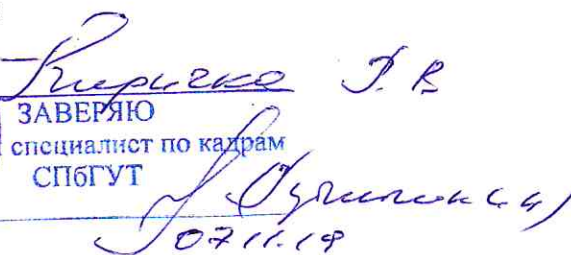 Киричка Р. В.
ЗАВЕРЯЮ
специалист по кадрам
СПбГУТ
07.11.19